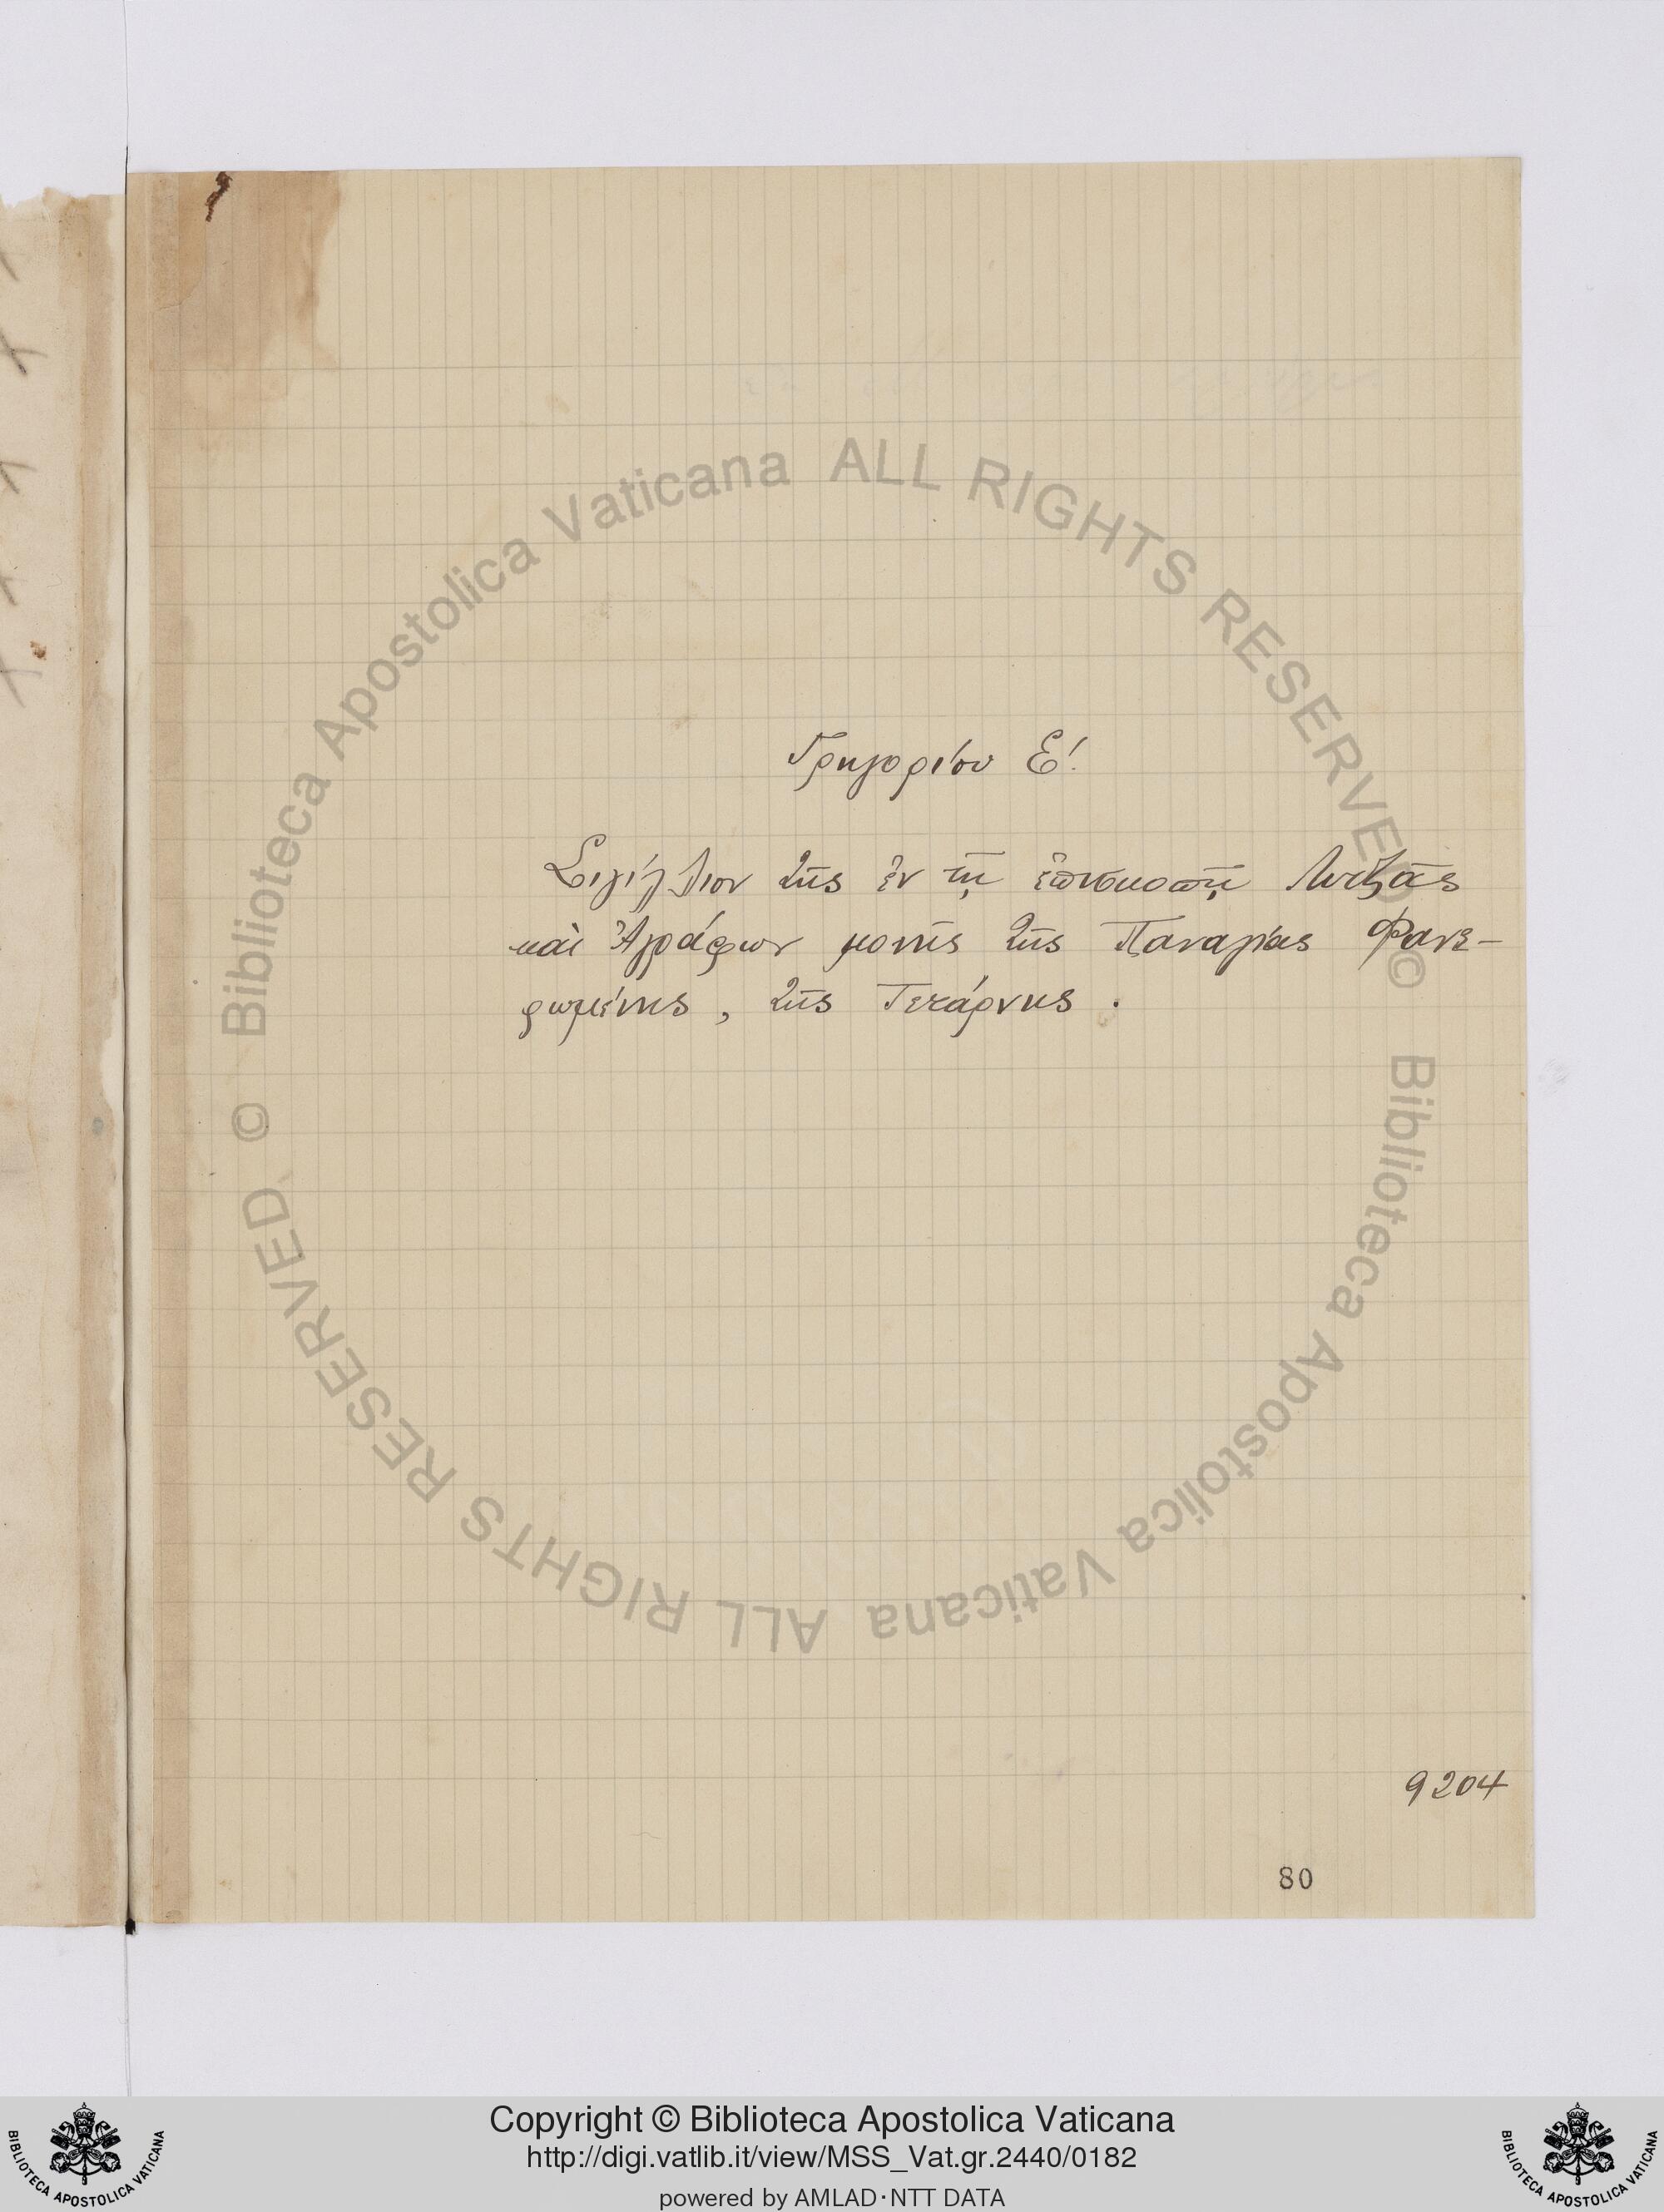 Γρηγορίου Ε΄.
Σιγίλλιον τῆς ἐν τῇ ἐπισκοπῇ Λιτζᾶς
καὶ Ἀγράφων μονῆς τῆς Παναγίας Φανε-
ρωμένης, τῆς Τετάρνης.
9204
80
© Biblioteca Apostolica Vaticana ALL RIGHTS RESERVED
© Biblioteca Apostolica Vaticana ALL RIGHTS RESERVED
Copyright © Biblioteca Apostolica Vaticana
http://digi.vatlib.it/view/MSS_Vat.gr.2440/0182
powered by AMLAD·NTT DATA
BIBLIOTECA APOSTOLICA VATICANA
BIBLIOTECA APOSTOLICA VATICANA